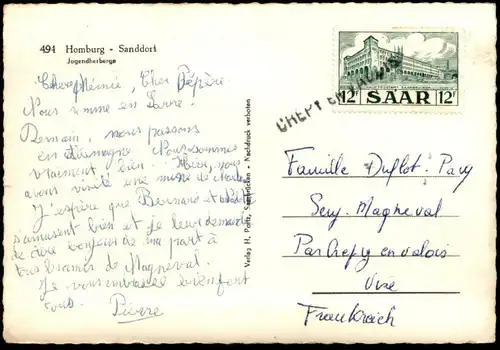 494 Homburg - Sanddorf
Jugendherberge
Chère Mémée, Cher Pépère.
Nous somme en Sarre.
Demain, nous passons
en Allemagne. Nous sommes
vraiment bien. Hier, nous
avons visité une mine de
J'espère que Bernard et
s'amusent bien et je leur demande
de dire bonjour de ma part à
tous de Magneval.
Je vous embrasse bien fort
tous.
Pierre
Verlag H. Saarbrücken - Nachdruck verboten
12F SAAR 12F
CREPY EN VALOIS
Famille Duflot-
Sery-Magneval
Par Crépy en valois
Oise
Frankreich